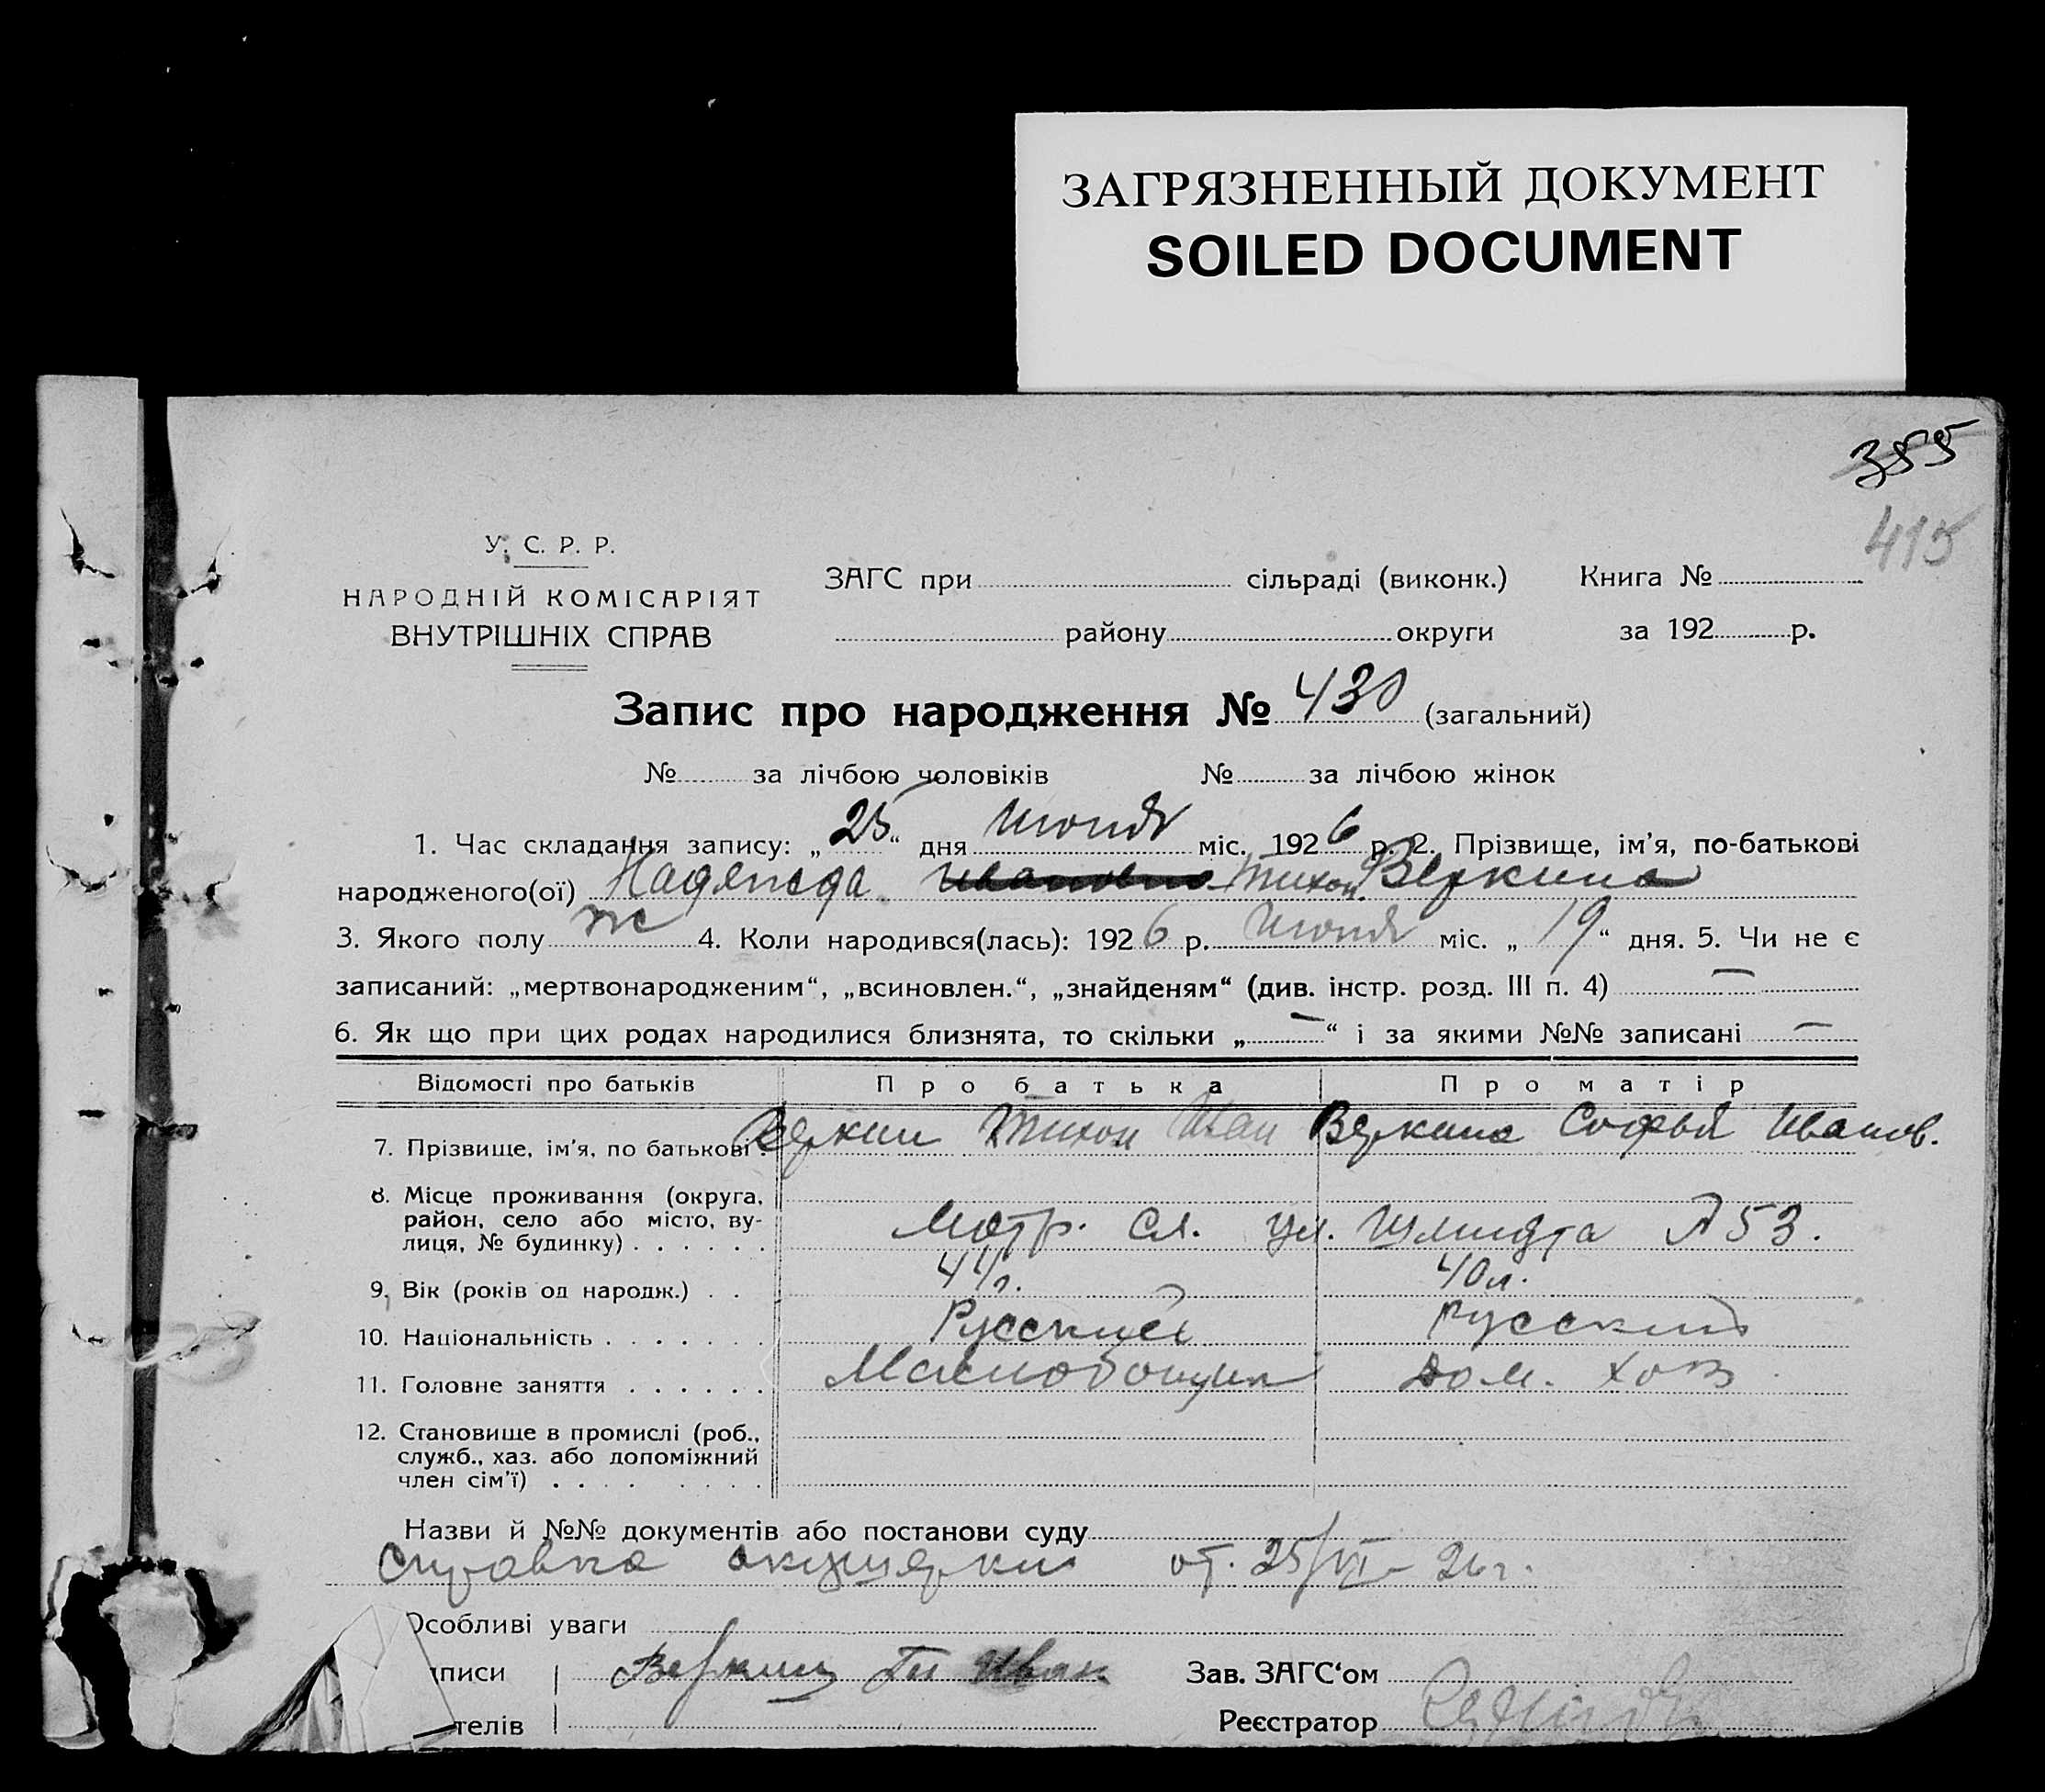 ЗАГРЯЗНЕННЫЙ ДОКУМЕНТ
SOILED DOCUMENT
355
415
У. С. Р. Р.
НАРОДНІЙ КОМІСАРІЯТ
ВНУТРІШНІХ СПРАВ
ЗАГС при сільраді (виконк.) Книга №
району округи за 192 р.
Запис про народження № 430 (загальний)
№ за лічбою чоловіків № за лічбою жінок
1. Час складання запису: „25“ дня июня міс. 1926 р. 2. Прізвище, ім'я, по-батькові
народженого(ої) Надежда Ивановна Тихон. Веркина
3. Якого полу ж 4. Коли народився(лась): 1926 р. июня міс. „19“ дня. 5. Чи не є
записаний: „мертвонародженим“, „всиновлен.“, „знайденям“ (див. інстр. розд. III п. 4) —
6. Як що при цих родах народилися близнята, то скільки „—“ і за якими №№ записані —
Відомості про батьків Про батька Про матір
7. Прізвище, ім'я, по батькові . Веркин Тихон Иван Веркина Софья Иванов.
8. Місце проживання (округа, район, село або місто, ву-
лиця, № будинку) . . . . . . Мотр. сл. ул. Шмидта 53.
9. Вік (років од народж.) . . 41 г. 40 л.
10. Національність . . . . . . . Русский Русский
11. Головне заняття . . . . . . Маслобойщик Дом. хоз
12. Становище в промислі (роб.,
служб., хаз. або допоміжний
член сім'ї) . . . . . . . .
Назви й №№ документів або постанови суду
Справка акушерки от. 25/VI - 26 г.
Особливі уваги
писи Веркин Ти Иван Зав. ЗАГС‘ом
телів Реєстратор